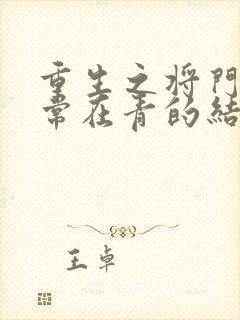 重生之将門
常在青的結
王卓